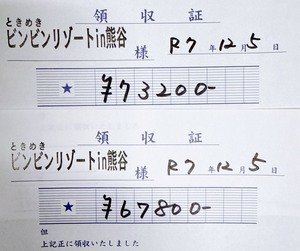 領収証
ときめき
ビンビンリゾートin熊谷 様 R7年12月5日
★ ¥73200-
領収証
ときめき
ビンビンリゾートin熊谷 様 R7年12月5日
★ ¥67800-
但
上記正に領収いたしました